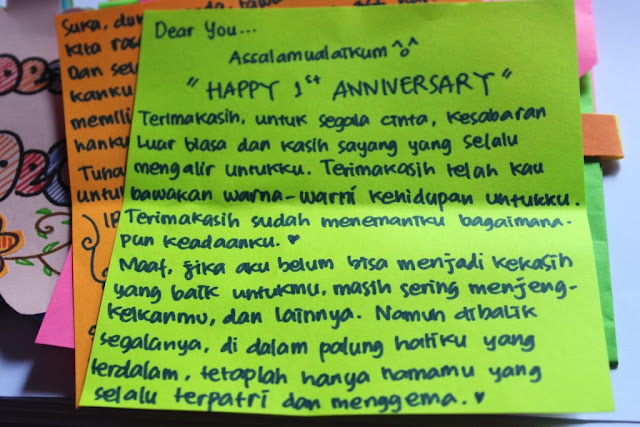 Dear You...
Assalamualaikum ^o^
"HAPPY 1st ANNIVERSARY"
Terimakasih, untuk segala cinta, kesabaran
luar biasa dan kasih sayang yang selalu
mengalir untukku. Terimakasih telah kau
bawakan warna-warni kehidupan untukku.
Terimakasih sudah menemaniku bagaimana-
pun keadaanku. ♥
Maaf, jika aku belum bisa menjadi kekasih
yang baik untukmu, masih sering menjeng-
kelkanmu, dan lainnya. Namun dibalik
segalanya, di dalam palung hatiku yang
terdalam, tetaplah hanya namamu yang
selalu terpatri dan menggema. ♥
Suka, du
kita
Dan sel
kanku
memili
hanku
Tuha
untu